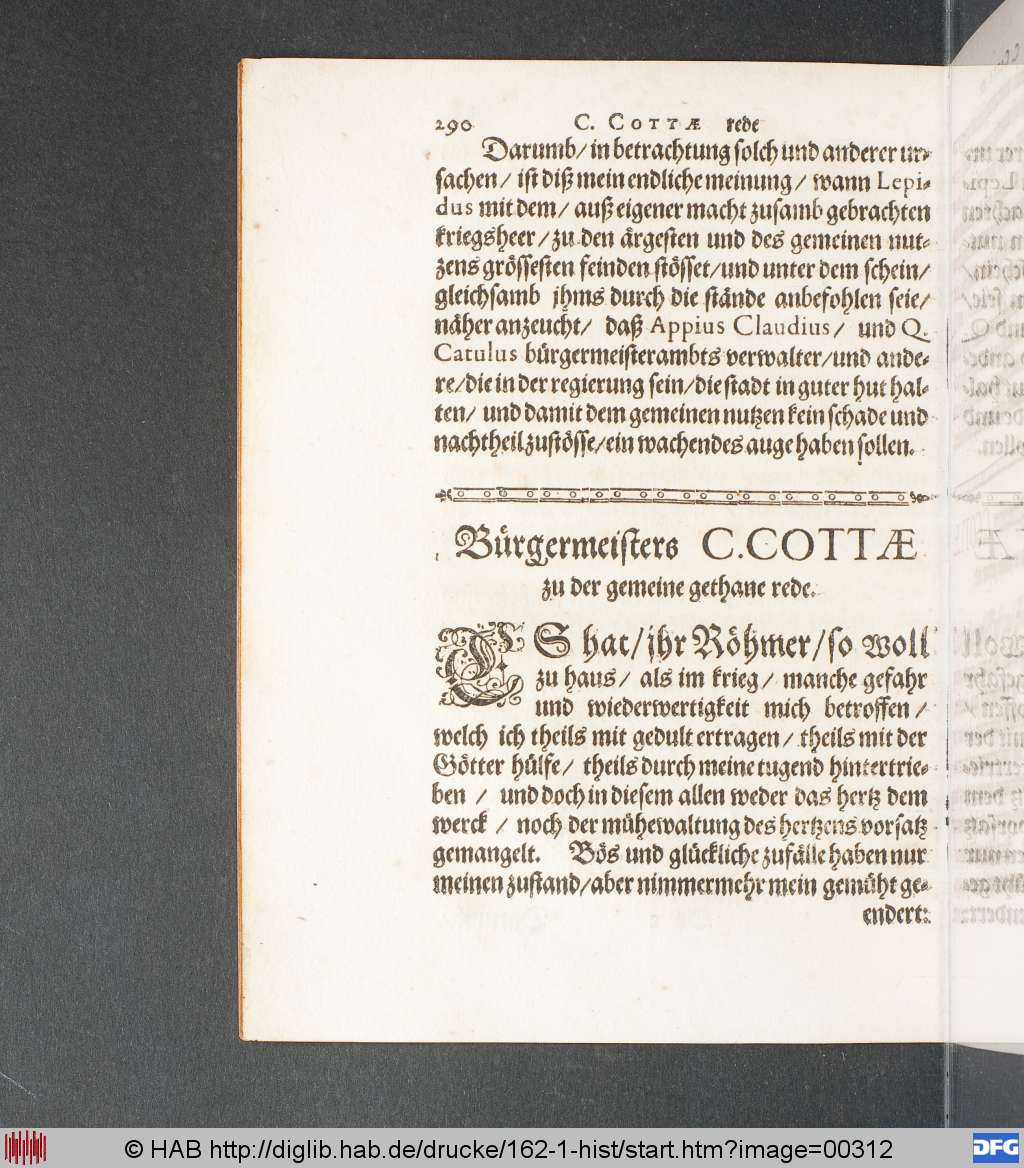 290 C. COTTÆ rede
Darumb/ in betrachtung solch und anderer ur-
sachen/ ist diß mein endliche meinung/ wann Lepi-
dus mit dem/ auß eigener macht zusamb gebrachten
kriegsheer/ zu den ärgesten und des gemeinen nut-
zens grössesten feinden stösset/ und unter dem schein/
gleichsamb jhms durch die stände anbefohlen seie/
näher anzeucht/ daß Appius Claudius/ und Q.
Catulus bürgermeisterambts verwalter/ und ande-
re/ die in der regierung sein/ die stadt in guter hut hal-
ten/ und damit dem gemeinen nutzen kein schade und
nachtheil zustösse/ ein wachendes auge haben sollen.
Bürgermeisters C. COTTÆ
zu der gemeine gethane rede.
ES hat/ jhr Röhmer/ so woll
zu haus/ als im krieg/ manche gefahr
und wiederwertigkeit mich betroffen/
welch ich theils mit gedult ertragen/ theils mit der
Götter hülfe/ theils durch meine tugend hintertrie-
ben / und doch in diesem allen weder das hertz dem
werck / noch der mühewaltung des hertzens vorsatz
gemangelt. Bös und glückliche zufälle haben nur
meinen zustand/ aber nimmermehr mein gemüht ge-
endert:
© HAB http://diglib.hab.de/drucke/162-1-hist/start.htm?image=00312
DFG